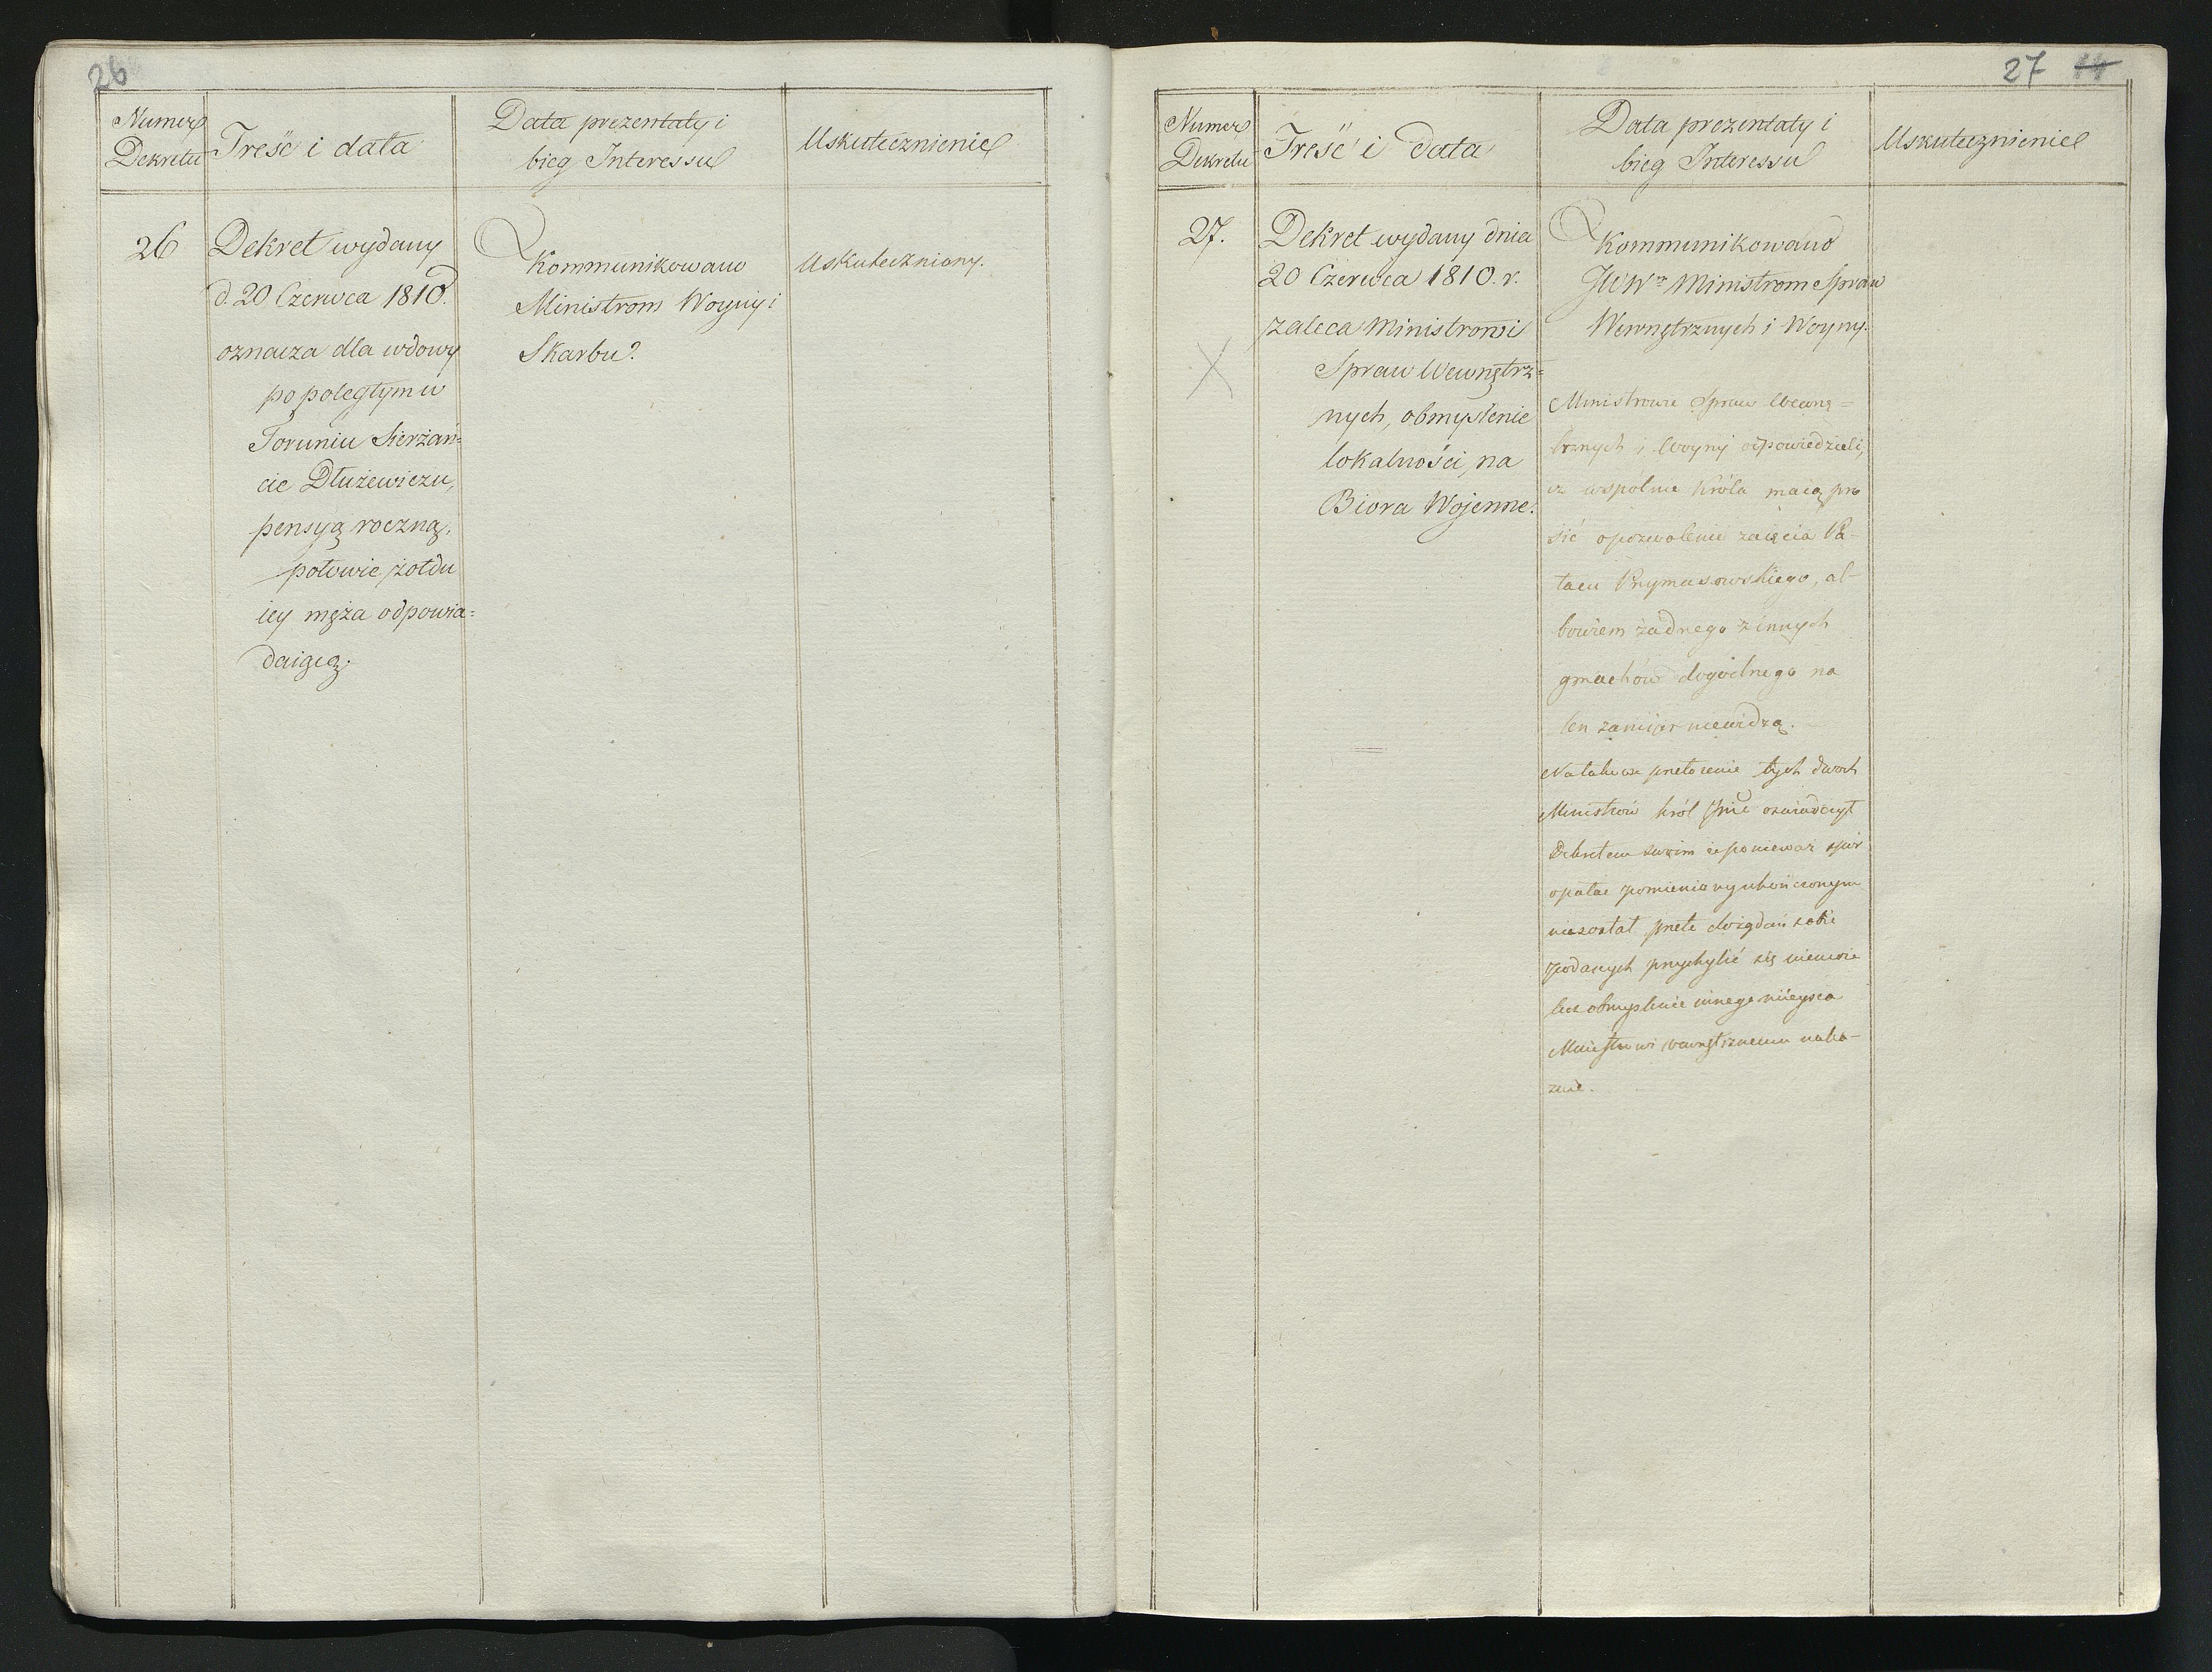 26
Numer
Dekretu
Treść i data
Data prezentaty i
bieg Interessu
Uskutecznienie
26
Dekret wydany
d. 20 Czerwca 1810.
oznacza dla wdowy
po poległym w
Toruniu Sierżan=
cie Dłużewiczu,
pensyą roczną,
połowie żołdu
iey męża odpowia=
daiącą.
Kommunikowano
Ministrom Woyny i
Skarbu.
Uskuteczniony.
27 14
Numer
Dekretu
Treść i data
Data prezentaty i
bieg Interessu
Uskutecznienie
27.
Dekret wydany dnia
20 Czerwca 1810. r.
zaleca Ministrowi
Spraw Wewnętrz=
nych, obmyślenie
lokalności, na
Biora Wojenne.
Kommunikowano
JWW Ministrom Spraw
Wewnętrznych i Woyny.
Ministrowie Spraw Wewnę=
trznych i Woyny odpowiedzieli,
iż wspólnie Króla maią pro
sić o pozwolenie zaięcia Pa-
łacu Prymasowskiego, al-
bowiem żadnego z innych
gmachów dogodnego na
ten zamiar niewidzą.
Na takowe przełożenie tych dwóch
Ministrów król Jmć oświadczył
Dekretem swoim iż ponieważ spór
o pałac pomieniony ukończonym
niezostał przeto do żądań sobie
podanych przychylić się niemoże
lecz obmyślenie innego mieysca
Ministrowi wewnętrznemu naka-
zuie.